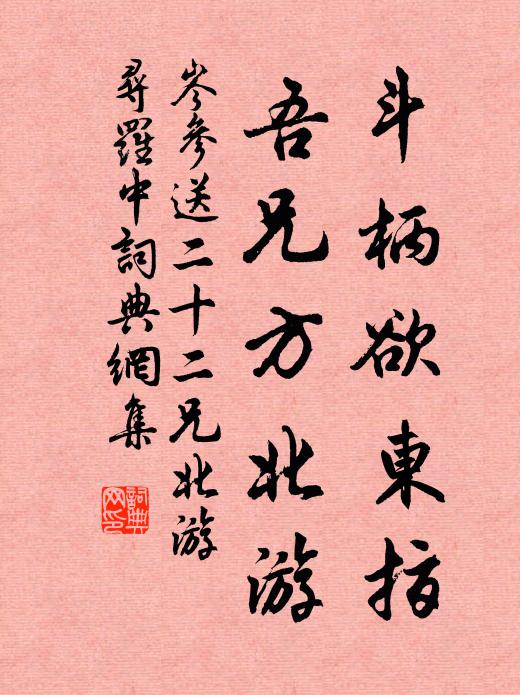 斗柄欲東指
吾兄方北游
岑參送二十二兄北游
尋羅中詞典網集
詞典
网印